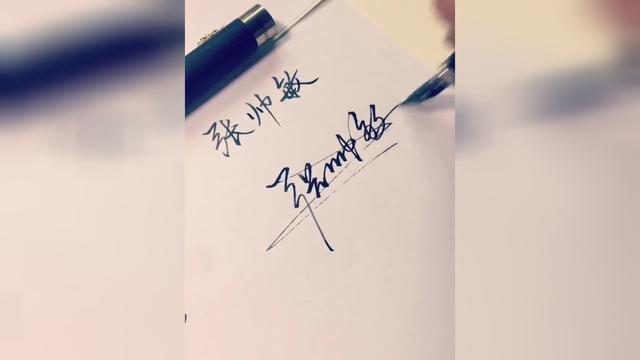 张帅敏
张帅敏